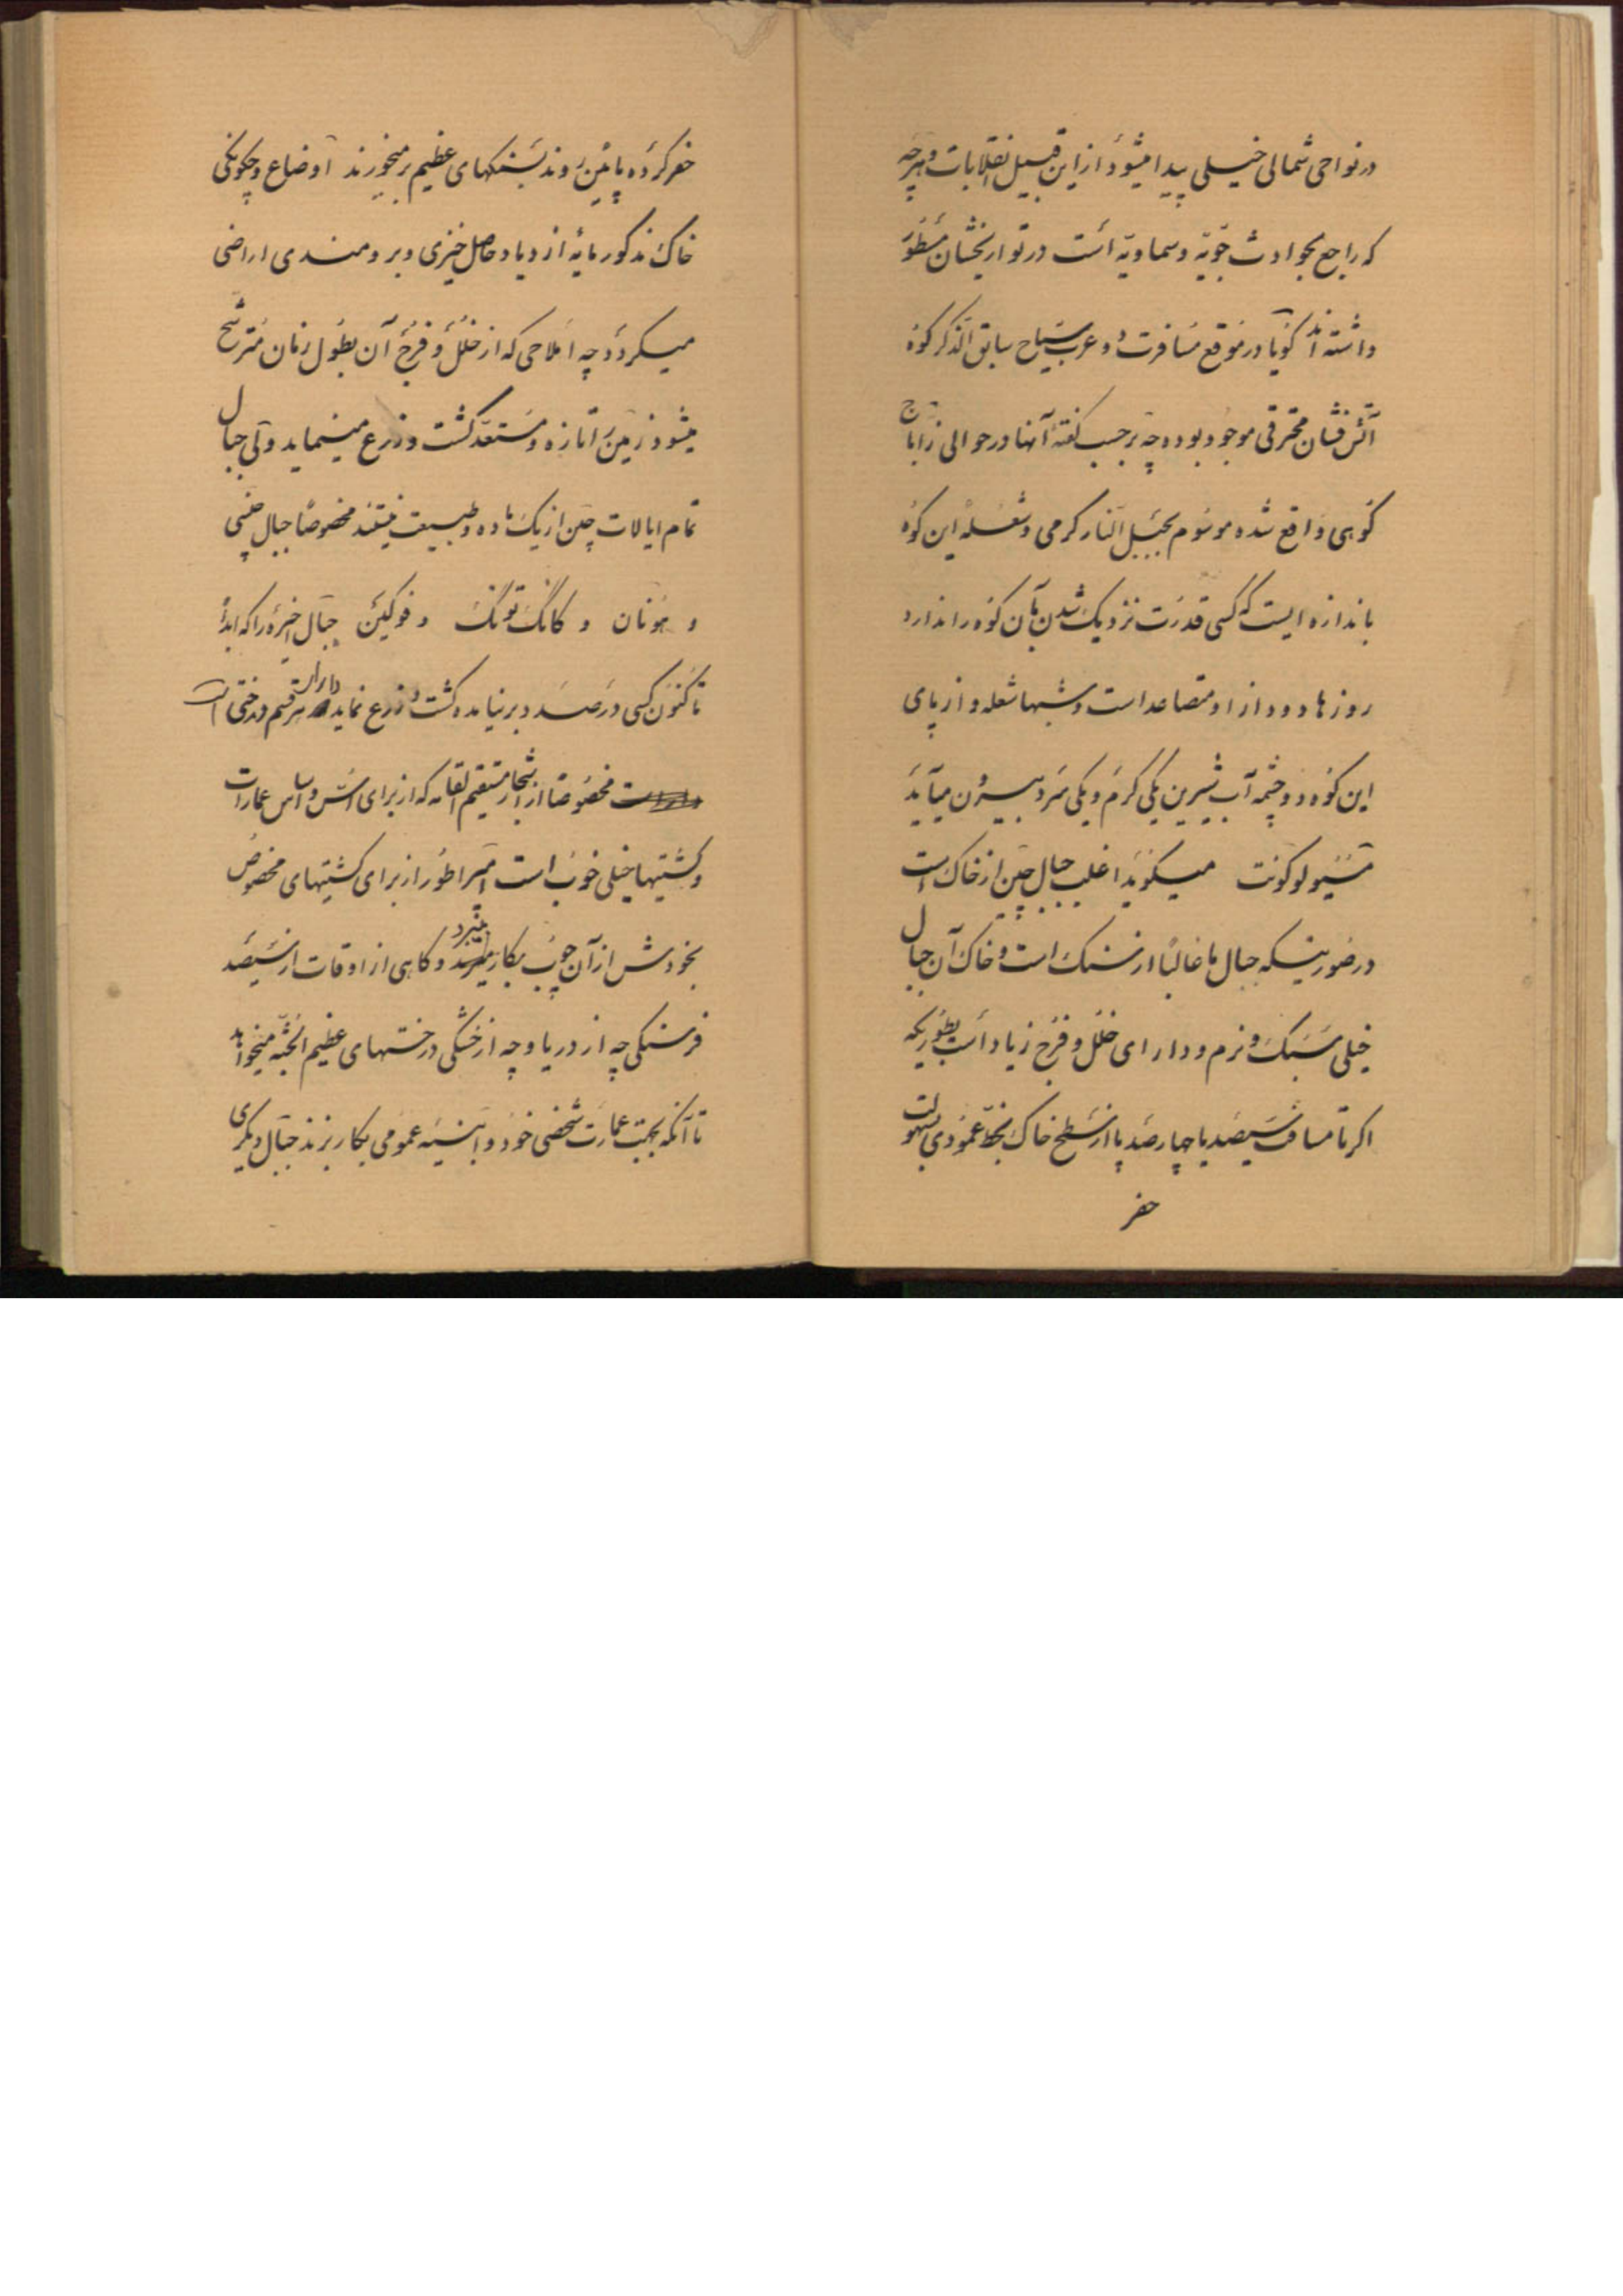 در نواحی شمالی خیلی پیدا میشود از این قبیل انقلابات و هرچه
که راجع بحوادث جوّیّه و سماویّه است در تواریخشان مسطور
داشته اند گویا در موقع مسافرت دو عرب سیاح سابق الذکر کوه
آتش فشان محترقی موجود بوده چه بر حسب گفته آنها در حوالی زاباج
کوهی واقع شده موسوم بجبل النار گرمی و شعلهٔ این کوه
باندازه ایست که کسی قدرت نزدیک شدن بآن کوه را ندارد
روزها دود از او متصاعد است و شبها شعله و از پای
این کوه دو چشمه آب شیرین یکی گرم و یکی سرد بیرون میآید
مسیو لوکونت میگوید اغلب جبال چین از خاک است
در صورتیکه جبال ما غالباً از سنگ است و خاک آن جبال
خیلی سبک و نرم و دارای خلل و فرج زیاد است بطوریکه
اگر تا مسافت سیصد یا چهارصد پا از سطح خاک بخط عمودی بسهولت
حفر
حفر کرده پائین روند بسنگهای عظیم بر نمیخورند اوضاع و چگونگی
خاک مذکور مایهٔ ازدیاد حاصل خیزی و برومندی اراضی
میگردد چه املاحی که از خلل و فرج آن بطول زمان مترشح
میشود زمین را تازه و مستعد کشت و زرع مینماید ولی جبال
تمام ایالات چین از یک ماده و طبیعت نیستند مخصوصاً جبال چنسی
و هونان و کانگ تونگ و فوکین جبال اخیره را که ابداً
تا کنون کسی در صدد بر نیامده کشت و زرع نماید دارای هر قسم درختی است
مخصوصا از اشجار مستقیم القامه که از برای اسّ و اساس عمارات
و کشتیها خیلی خوب است امپراطور از برای کشتیهای مخصوص
بخودش از آن چوب بکار میبرد و گاهی از اوقات از سیصد
فرسنگی چه از دریا و چه از خشکی درختهای عظیم الجثّه میخواهد
تا آنکه بجهت عمارت شخصی خود و ابنیه عمومی بکار برند جبال دیگری